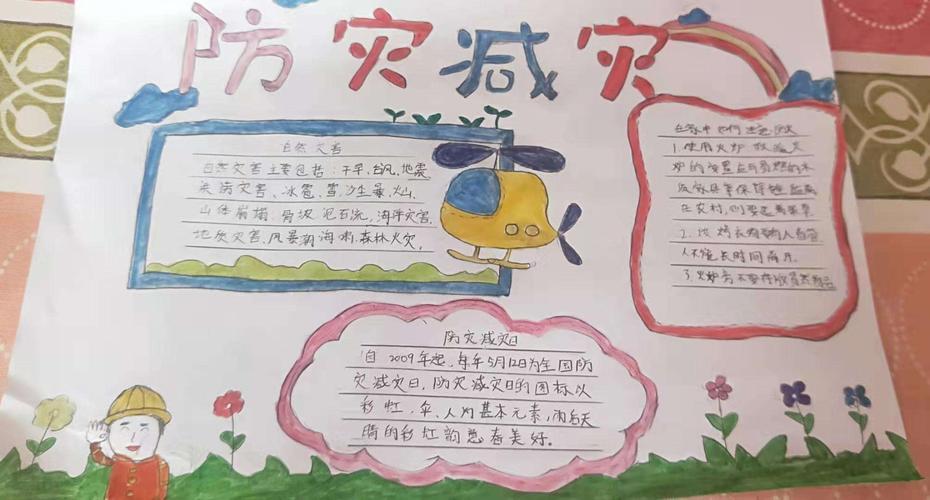 防灾减灾
自然灾害
自然灾害主要包括：干旱、台风、地震
病害、冰雹、雪、沙尘暴、火山、
山体崩塌、滑坡、泥石流、海洋灾害、
地质灾害、风暴潮、海啸、森林火灾。
在家中如何注意防火
1.使用火炉取暖火
炉的安置应与易燃的木
质家具等保持距离
在农村,则要远离柴草
2.烘烤衣物有人看管
人不能长时间离开
3.火炉旁不要存放易燃物品
防灾减灾日
自2009年起,每年5月12日为全国防
灾减灾日,防灾减灾日的图标以
彩虹、伞、人为基本元素,雨后天
晴的彩虹韵意着美好。